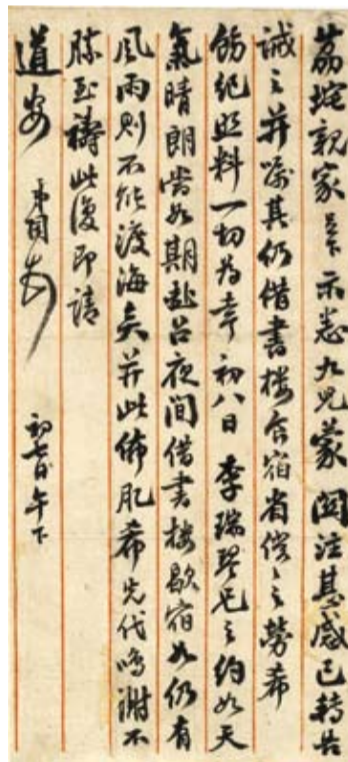 荔垞親家足下示悉九兒蒙關注甚感已轉告
誡之并囑其仍借書樓舍宿省僕僕之勞希
飭紀照料一切為幸初八日李瑞琴兄之約如天
氣晴朗當如期赴召夜間借書樓歇宿如仍有
風雨則不能渡海矣并此佈肊希先代鳴謝不
勝至禱此復即請
道安 弟閏 初七日午下